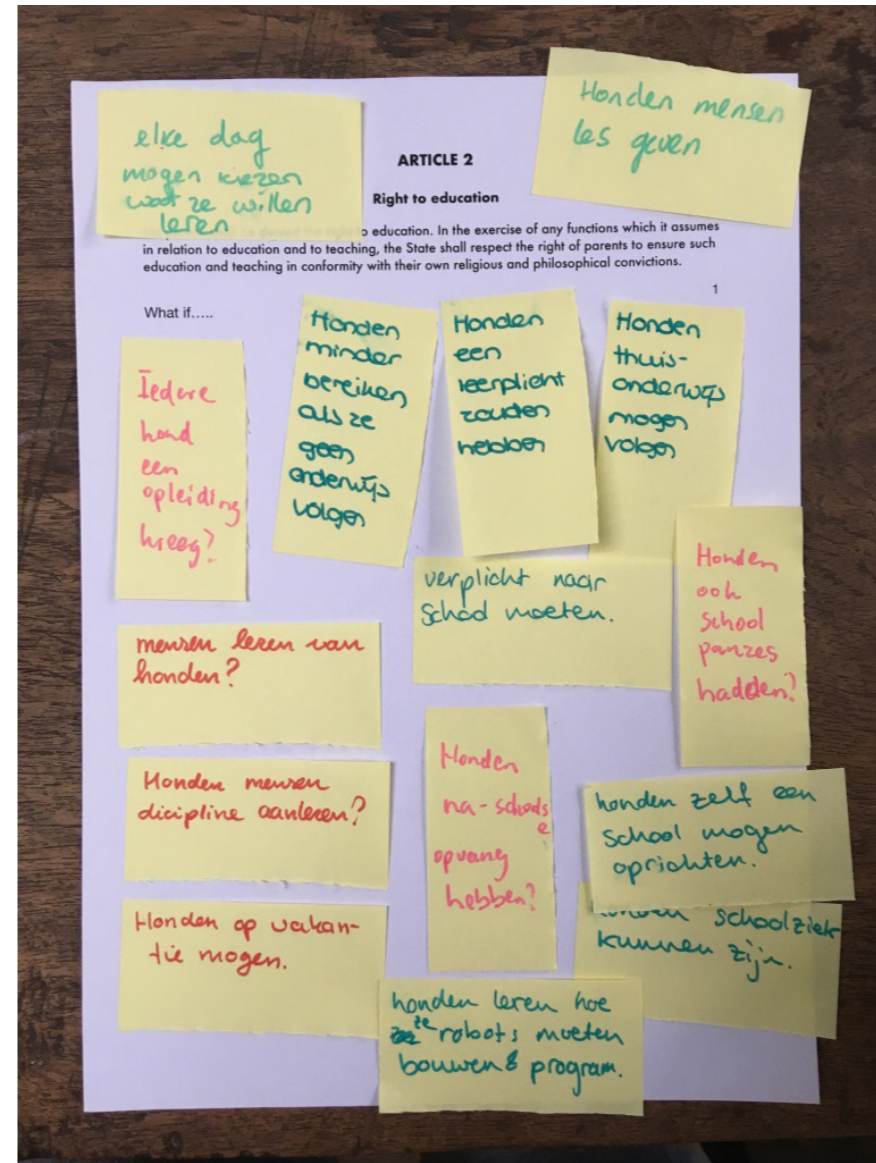 elke dag
mogen kiezen
wat ze willen
leren
Honden mensen
les geven
ARTICLE 2
Right to education
o education. In the exercise of any functions which it assumes
in relation to education and to teaching, the State shall respect the right of parents to ensure such
education and teaching in conformity with their own religious and philosophical convictions.
1
What if.....
Iedere
hond
een
opleiding
kreeg?
Honden
minder
bereiken
als ze
geen
onderwijs
volgen
Honden
een
leerplicht
zouden
hebben
Honden
thuis-
onderwijs
mogen
volgen
verplicht naar
School moeten.
Honden
ook
school
pauzes
hadden?
mensen leren van
honden?
Honden mensen
dicipline aanleren?
Honden
na-schools
e
opvang
hebben?
honden zelf een
School mogen
oprichten.
Honden op vakan-
tie mogen.
schoolziek
kunnen zijn.
honden leren hoe
ze robots moeten
bouwen & program.